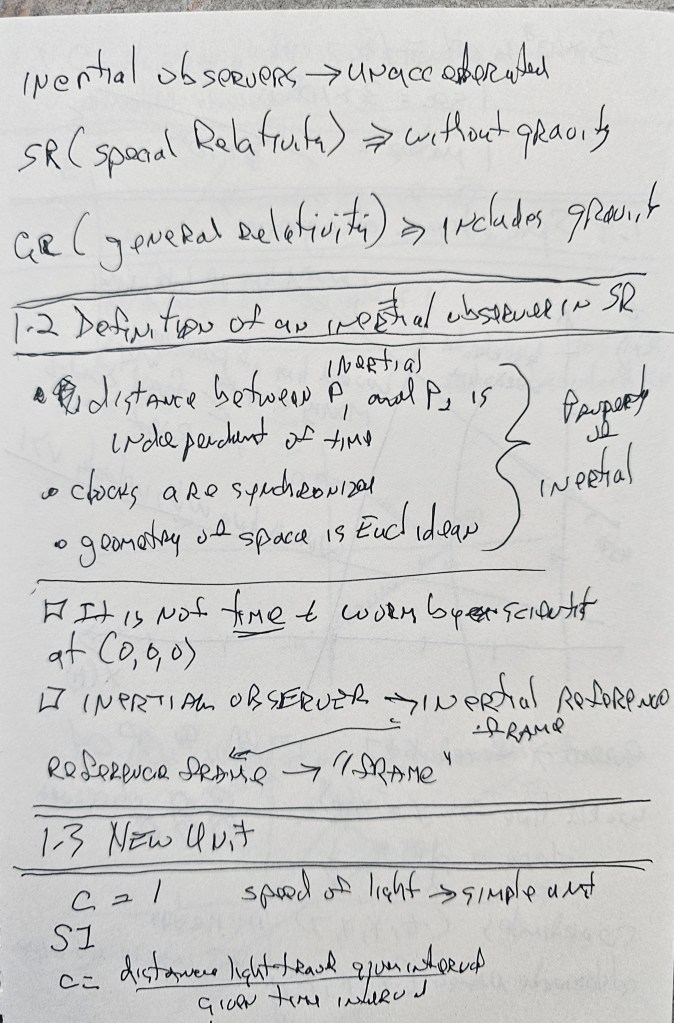 Inertial observers → unaccelerated
SR (special Relativity) ⇒ without gravity
GR (general Relativity) ⇒ includes gravity
1.2 Definition of an inertial observer in SR
inertial
• distance between P₁ and P₂ is
independent of time
• clocks are synchronized
• geometry of space is Euclidean
Property
inertial
□ It is not time t worn by scientist
at (0,0,0)
□ INERTIAL OBSERVER → inertial Reference
frame
Reference frame → "frame"
1.3 New Unit
c = 1 speed of light → simple unit
SI
c = distance light travel given interval
given time interval